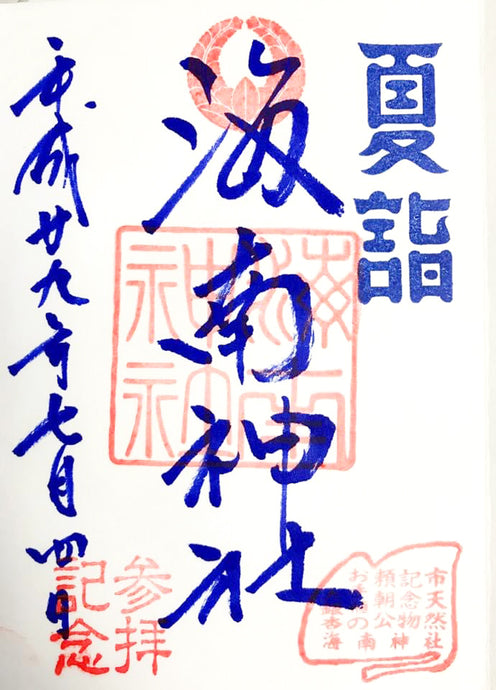 夏詣
海南神社
平成廿九年七月四日
海南神社
参拝
記念
市天然
記念物
頼朝公
海南神社